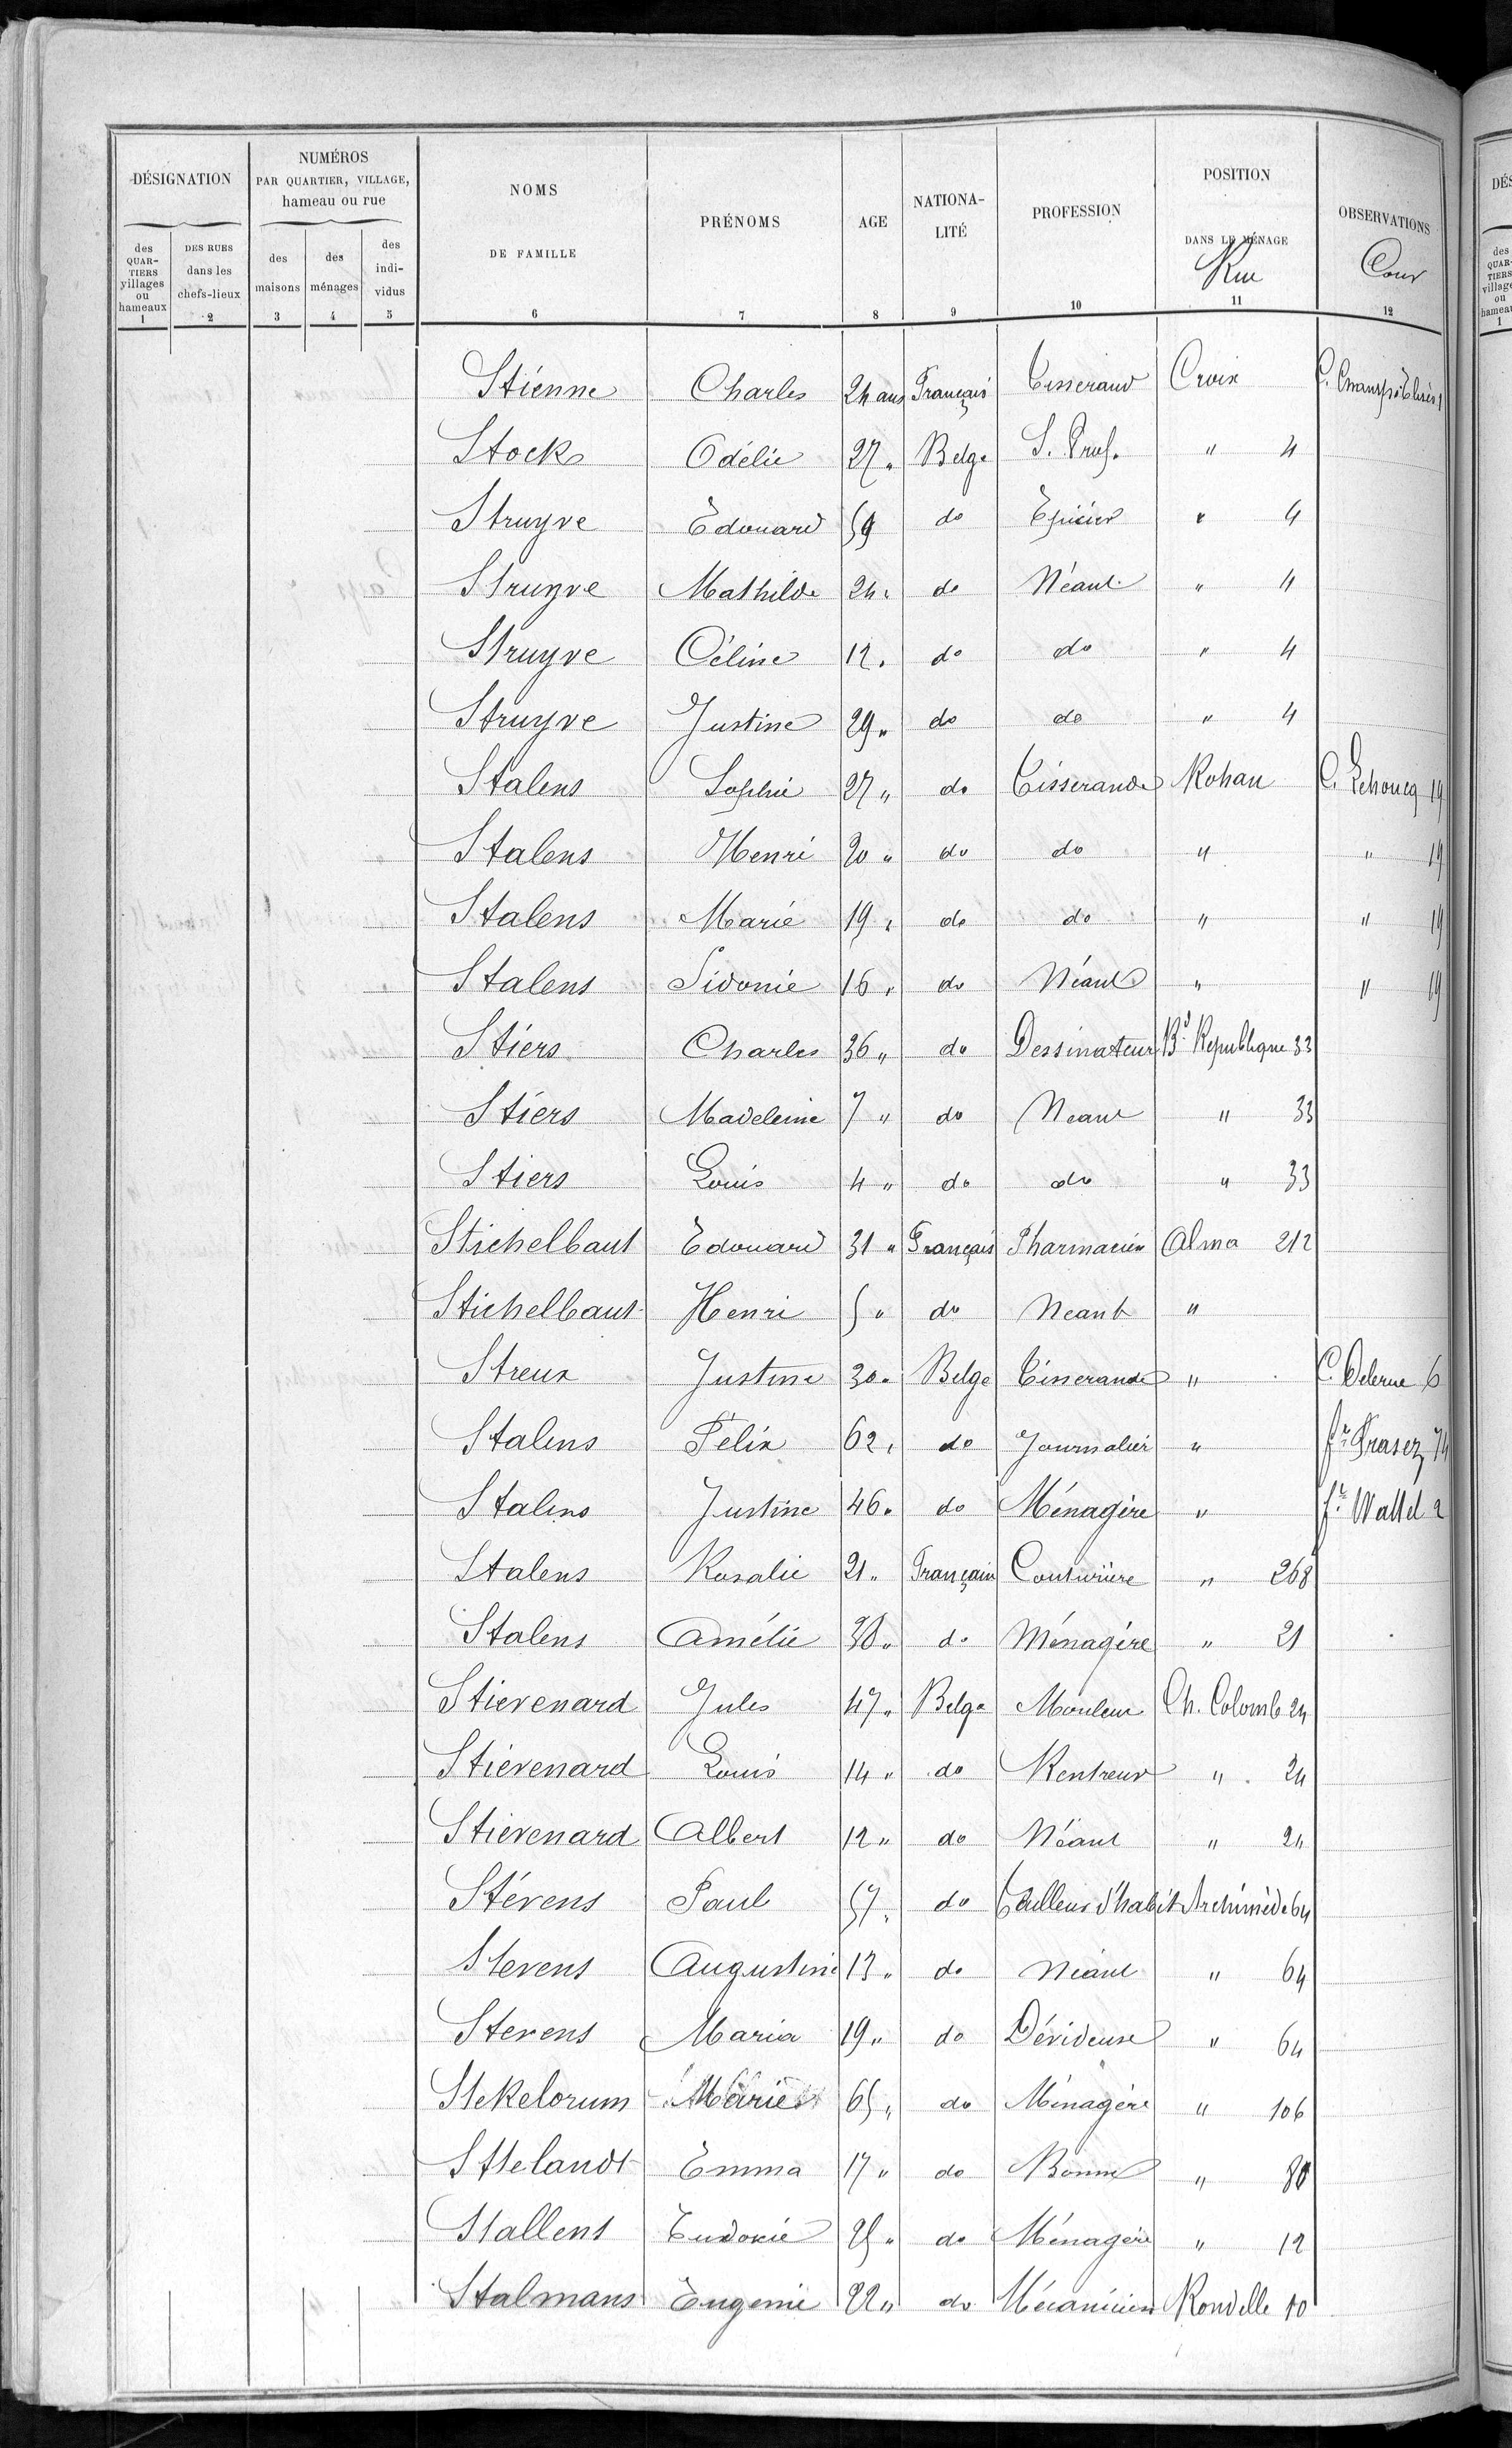 DÉSIGNATION NUMÉROS PAR QUARTIER, VILLAGE, hameau ou rue NOMS DE FAMILLE PRÉNOMS AGE NATIONALITÉ PROFESSION POSITION DANS LE MÉNAGE Rue OBSERVATIONS Cour
des QUARTIERS villages ou hameaux DES RUES dans les chefs-lieux des maisons des ménages des individus
1 2 3 4 5 6 7 8 9 10 11 12
Stienne Charles 24 ans Français Tisserand Croix C. Champs Elisés 1
Stock Odélie 27 " Belge S. Prof. " 4
Struyve Edouard 59 do Epicier " 4
Struyve Mathilde 24 " do Néant " 4
Struyve Céline 12 " do do " 4
Struyve Justine 29 " do do " 4
Stalens Sophie 27 " do Tisserande Rohan C. Lehoucq 19
Stalens Henri 20 " do do " " 19
Stalens Marie 19 " do do " " 19
Stalens Sidonie 16 " do Néant " " 19
Stiers Charles 36 " do Dessinateur Bd République 33
Stiers Madeleine 7 " do Neant " 33
Stiers Louis 4 " do do " 33
Stichelbaut Edouard 31 " Français Pharmacien Alma 212
Stichelbaut Henri 5 " do Neant "
Streux Justine 30 " Belge Tisserande " C. Delerue 6
Stalens Félix 62 " do Journalier " fr Frasez 74
Stalens Justine 46 " do Ménagère " fr Wattel 2
Stalens Rosalie 21 " Français Couturière " 268
Stalens Amélie 30 " do Ménagère " 21
Stievenard Jules 47 " Belge Mouleur Ch. Colomb 24
Stievenard Louis 14 " do Rentreur " 24
Stievenard Albert 12 " do Néant " 24
Stévens Paul 57 " do Tailleur d'habit Archimède 64
Stevens Augustine 13 " do Néant " 64
Stevens Maria 19 " do Dévideuse " 64
Stekelorum Marie 65 " do Ménagère " 106
Sttelandt Emma 17 " do Bonne " 80
Stallens Eudoxie 25 " do Ménagère " 12
Stalmans Eugenie 22 " do Mécanicien Rondelle 10